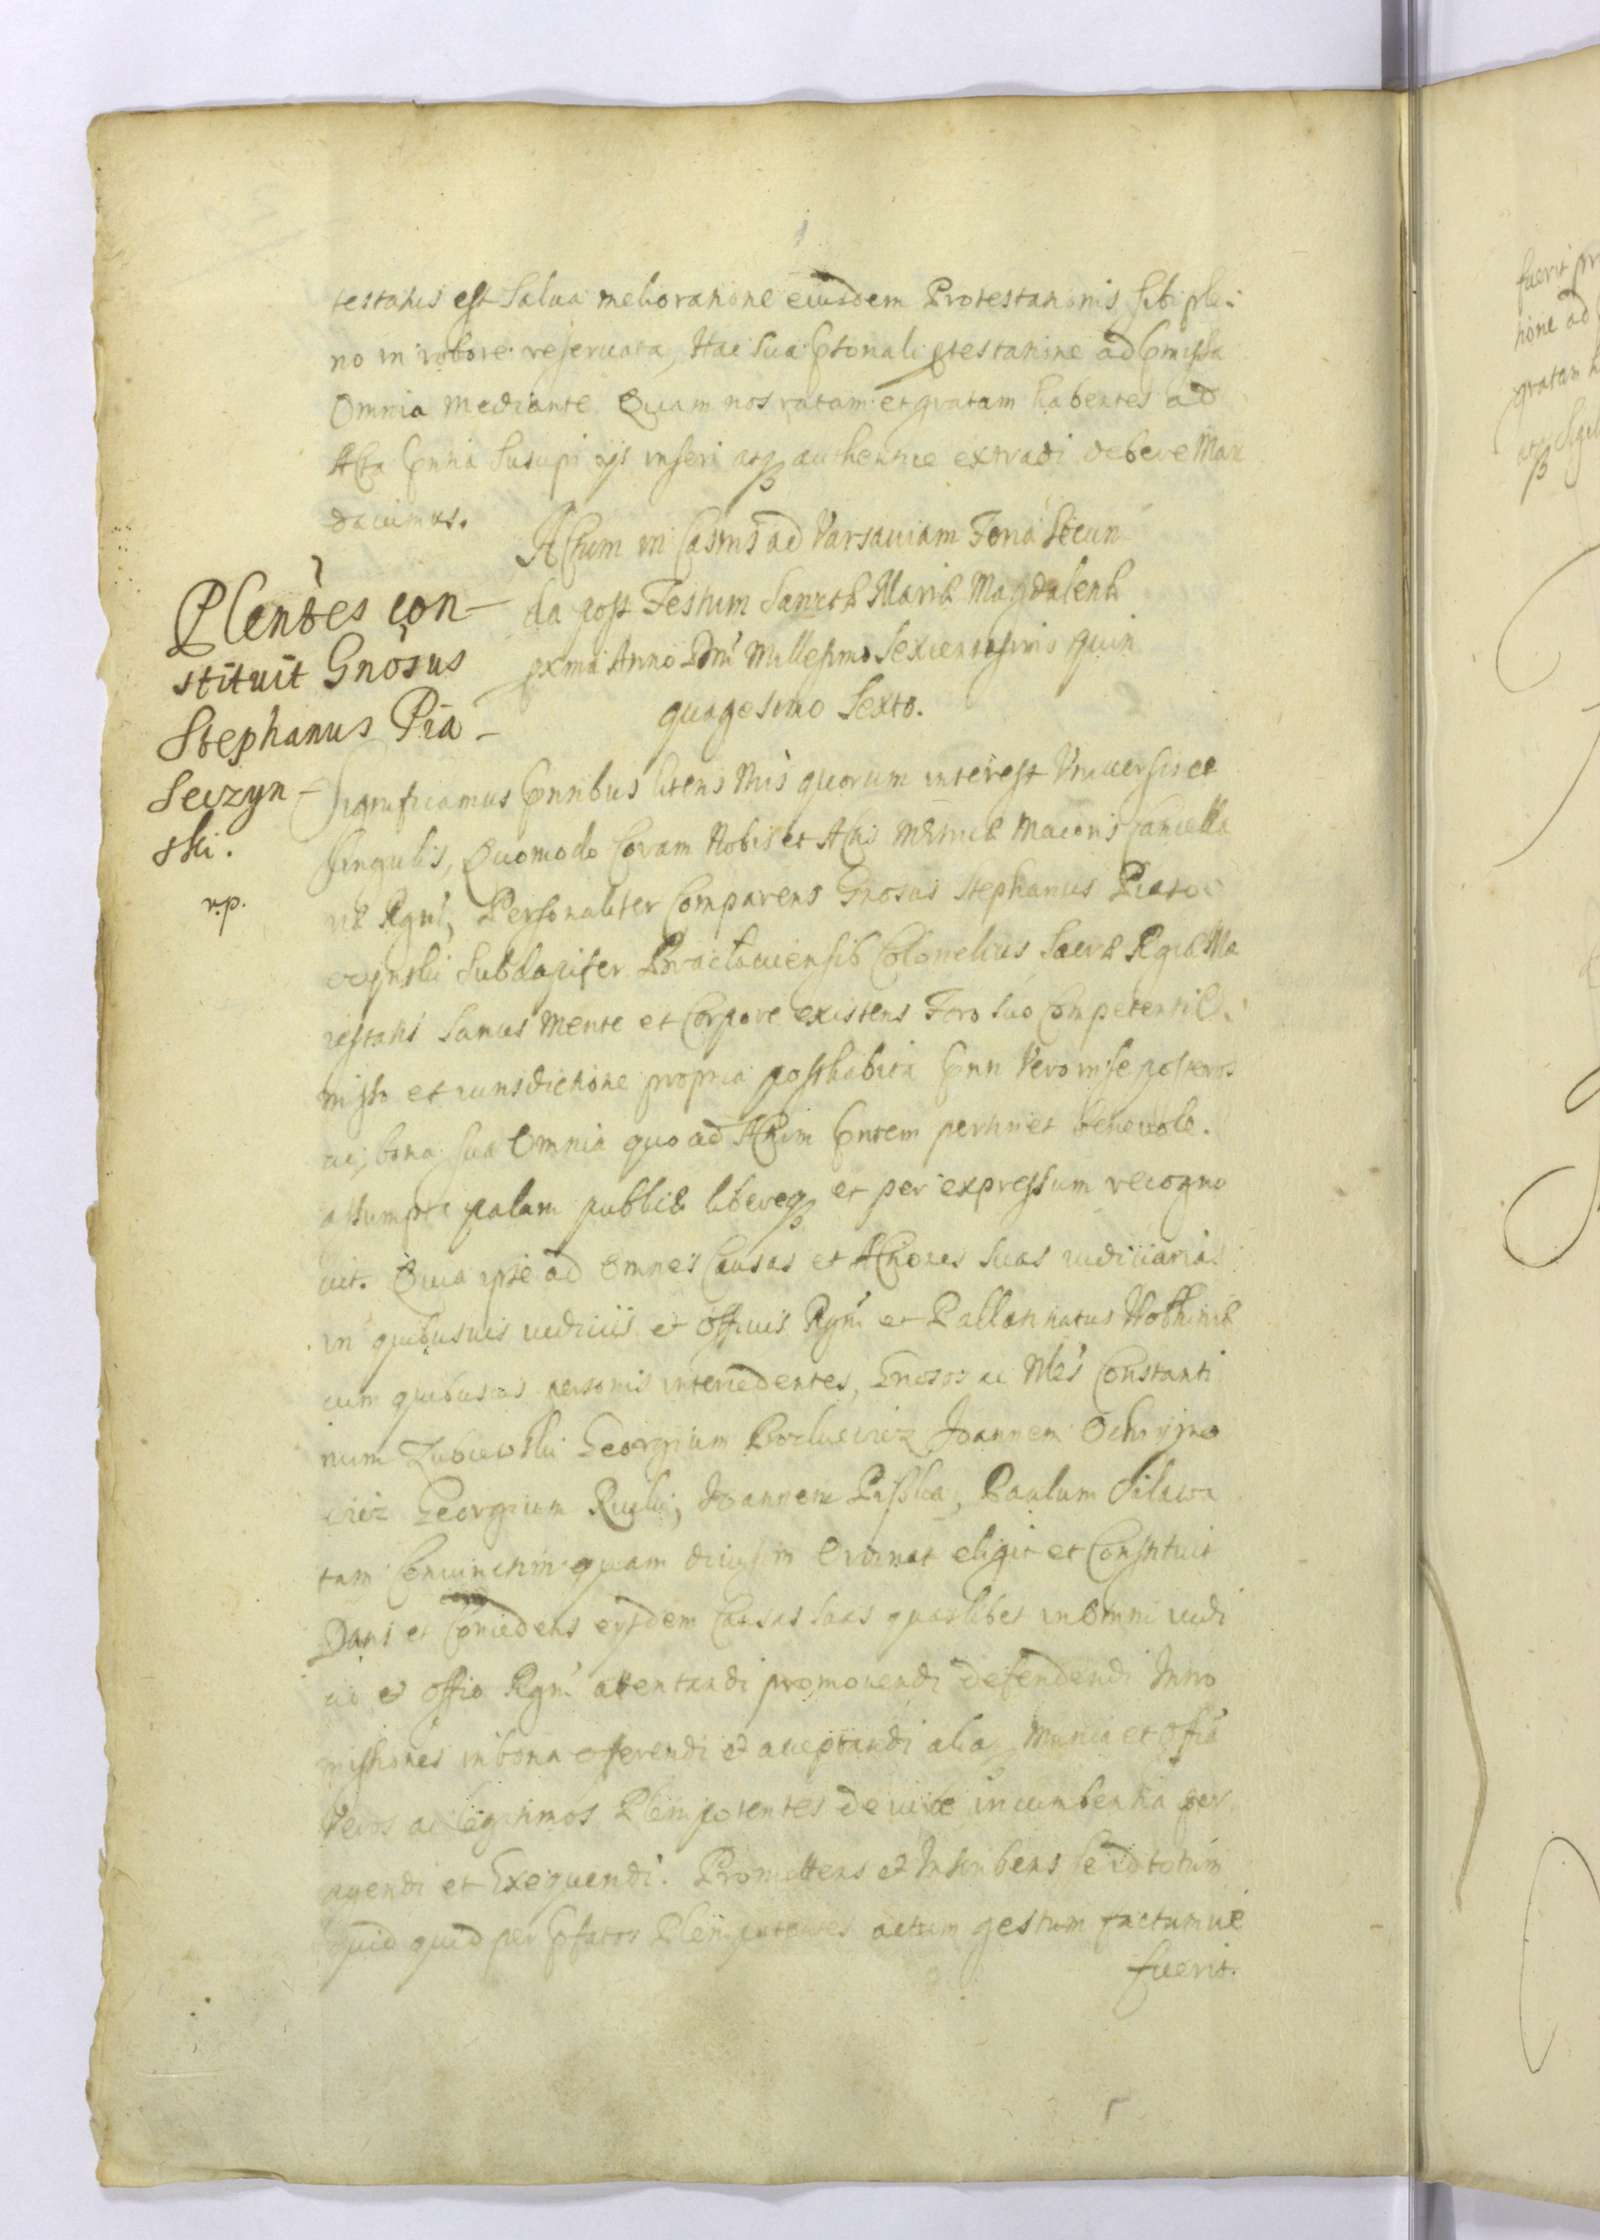 testatus est Salua melioratione eiusdem Protestationis sibi ple:
no in robore reseruata, Hac sua pntonali ptestatione ad pmissa
Omnia mediante. Quam nos ratam et gratam habentes ad
Acta pntia Suscipi ijs inseri atq authentice extradi debere Man
dauimus.
Actum in Castris ad Varsauiam Feria Secun
da post Festum Sanctæ Mariæ Magdalenæ
pxma Anno Dni Millesimo Sexcentesimo quin
quagesimo Sexto.
Plentes con-
stituit Gnosus
Stephanus Pia-
seczyn-
ski.
r.p.
Significamus pntibus literis Nris quorum interest Vniuersis et
singulis, Quomodo Coram Nobis et Actis Metrices Maioris Cancella
riæ Regni, Personaliter Comparens Gnosus Stephanus Piaso
czynski Subdapifer Braclauiensis Colonellus Sacræ Regiæ Ma
iestatis Sanus mente et Corpore existens Foro suo Competenti O:
misso et iurisdictione propria posthabita pnti Vero in se posteros
ac bona sua Omnia quo ad Actum pntem pertinet beneuole.
assumpto palam publice libereq et per expressum recogno
uit. Quia ipse ad Omnes Causas et Actiones suas iudiciarias
in quibusuis iudiciis et officiis Regni et Pallatinatus
cum quibusuis personis intercedentes, Gnosos ac Nbles Constanti
num Zubcewski Georgium Joannem
wicz Georgium Joannem Paulum
tam Coniunctim quam diuisim Ordinat eligit et Constituit
Dans et Concedens eysdem Causas suas quaslibet in Omni iudi
cio et offio Regni attentandi promouendi defendendi Intro
missiones in bona offerendi et acceptandi aliaq Munia et Offia
Veros ac legitimos Plenipotentes de iure incumbentia per
agendi et Exequendi. Promittens et Inscribens se id totum
quid quid per pfatos Plenipotentes actum gestum factumue
fuerit.